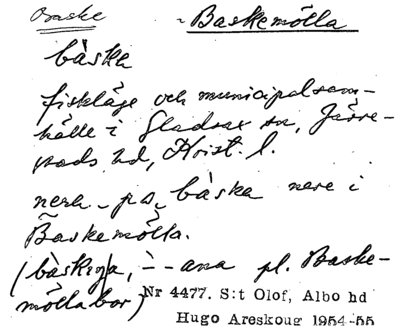 Baske - Baskemölla
båska
fiskläge och municipalsam-
hälle i Gladsax sn, Järre-
stads hd, Krist. l.
nerh - pa båska nere i
Baskemölla.
(båskηa, -- ana pl. Baske-
möllabor)
Nr 4477. S:t Olof, Albo hd
Hugo Areskoug 1954-55